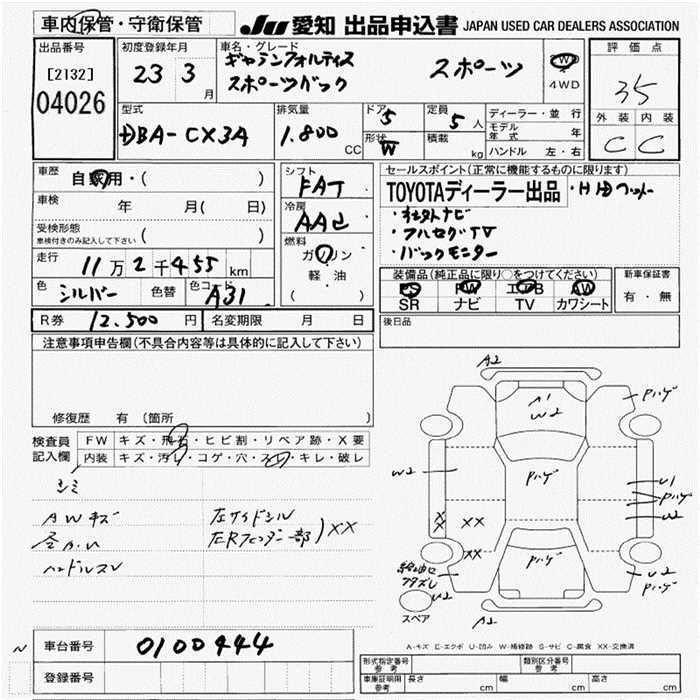 車内保管・守衛保管
JU 愛知 出品申込書 JAPAN USED CAR DEALERS ASSOCIATION
出品番号
[2132]
04026
初度登録年月
23 3
月
車名・グレード
ギャランフォルティス
スポーツバック
スポーツ
2WD
4WD
評価点
35
外装 内装
C C
型式
DBA-CX3A
排気量
1.800
CC
ドア
5
形状
W
定員
5人
積載
kg
ディーラー・並行
モデル年式 年
ハンドル 左・右
車歴
自家用・( )
車検
年 月( 日)
受検形態
車検付きのみ記入して下さい ( )
走行
11万2千455km
色
シルバー
色替
色コード
A31
シフト
FAT
冷房
AAC
燃料
ガソリン
軽・油
( )
セールスポイント(正常に機能するものに限ります)
TOYOTAディーラー出品
・社外ナビ
・フルセグTV
・バックモニター
装備品(純正品に限り○をつけてください)
PS PW エアB AW
SR ナビ TV カワシート
新車保証書
有・無
R券 12.500円 名変期限 月 日
後日品
注意事項申告欄(不具合内容等は具体的に記入して下さい)
修復歴 有(箇所 )
検査員
記入欄
FW キズ・飛石・ヒビ割・リペア跡・X要
内装 キズ・汚レ・コゲ・穴・スレ・キレ・破レ
シミ
AWキズ
ハンドルスレ
左サイドシル
左Rフェンダー部) XX
A2
A1
W2
Pハゲ
W2
Pハゲ
U1
Pハゲ
U2
X
X
XX
XX
Pハゲ
給油口
フタズレ
U2
U2
Pハゲ
スペア
A2
A-キズ E-エクボ U-凹み W-補修跡 S-サビ C-腐食 XX-交換済
N
車台番号 0100444
登録番号
形式指定番号
参考
類別区分番号
参考
車庫証明用
参考
長さ cm 幅 cm 高さ cm